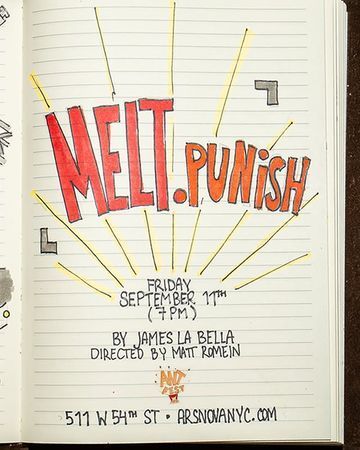 MELT.PUNiSH
FRIDAY
SEPTEMBER 11TH
(7PM)
BY JAMES LA BELLA
DIRECTED BY MATT ROMEIN
ANT
FEST
511 W 54TH ST • ARSNOVANYC.COM